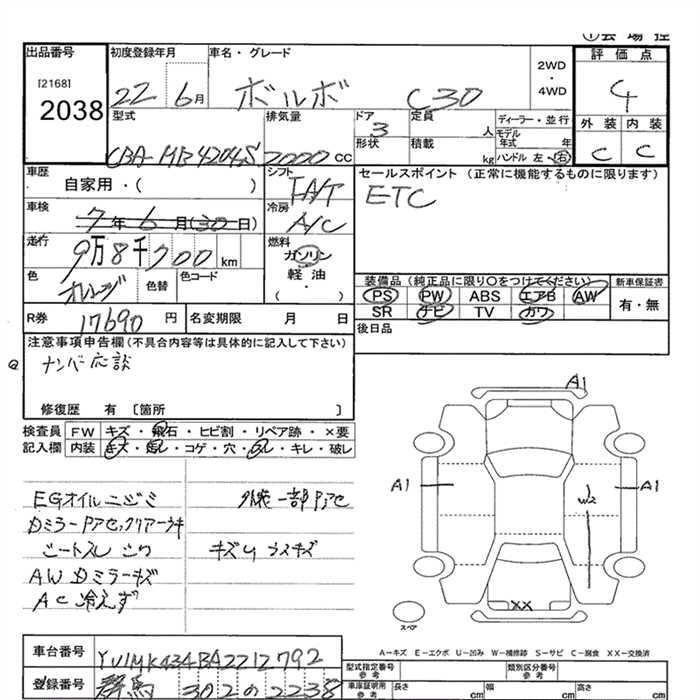 ①会場控
出品番号
[2168]
2038
初度登録年月
22年6月
車名・グレード
ボルボ C30
2WD
・
4WD
評価点
4
型式
CBA-MB4204S
排気量
2000cc
ドア
3
形状
定員
人
積載
kg
ディーラー・並行
モデル年式 年
ハンドル 左・右
外装 内装
C C
車歴
自家用・( )
シフト
IA/T
セールスポイント (正常に機能するものに限ります)
ETC
車検
7年6月(30日)
冷房
A/C
走行
9万8千700km
燃料
ガソリン
軽油・
( )
色
オレンジ
色替
色コード
装備品(純正品に限り○をつけてください)
PS PW ABS エアB AW
SR ナビ TV カワ
新車保証書
有・無
R券
17690円
名変期限 月 日
後日品
注意事項申告欄(不具合内容等は具体的に記入して下さい)
ナンバー応談
修復歴 有 〔箇所 〕
検査員 FW キズ・飛石・ヒビ割・リペア跡・×要
記入欄 内装 キズ・汚レ・コゲ・穴・スレ・キレ・破レ
EGオイルニジミ 外装一部Pアセ
DミラーPアセ、クリアーハキ
シートスレ シワ キズU ウスキズ
AW Dミラーキズ
AC冷えず
A1
A1
W2
A1
XX
スペア
A-キズ E-エクボ U-凹み W-補修跡 S-サビ C-腐食 XX-交換済
車台番号
YV1MK434BA2212792
登録番号
群馬 302の2238
型式指定番号
参考
類別区分番号
参考
車庫証明用
参考
長さ cm
幅 cm
高さ cm